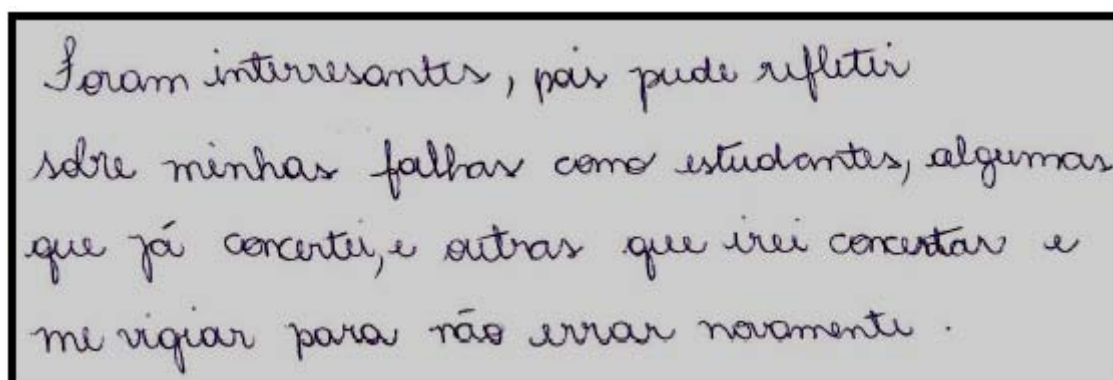 Foram interresantes, pois pude refletir
sobre minhas falhas como estudantes, algumas
que já concertei, e outras que irei concertar e
me vigiar para não errar novamente.